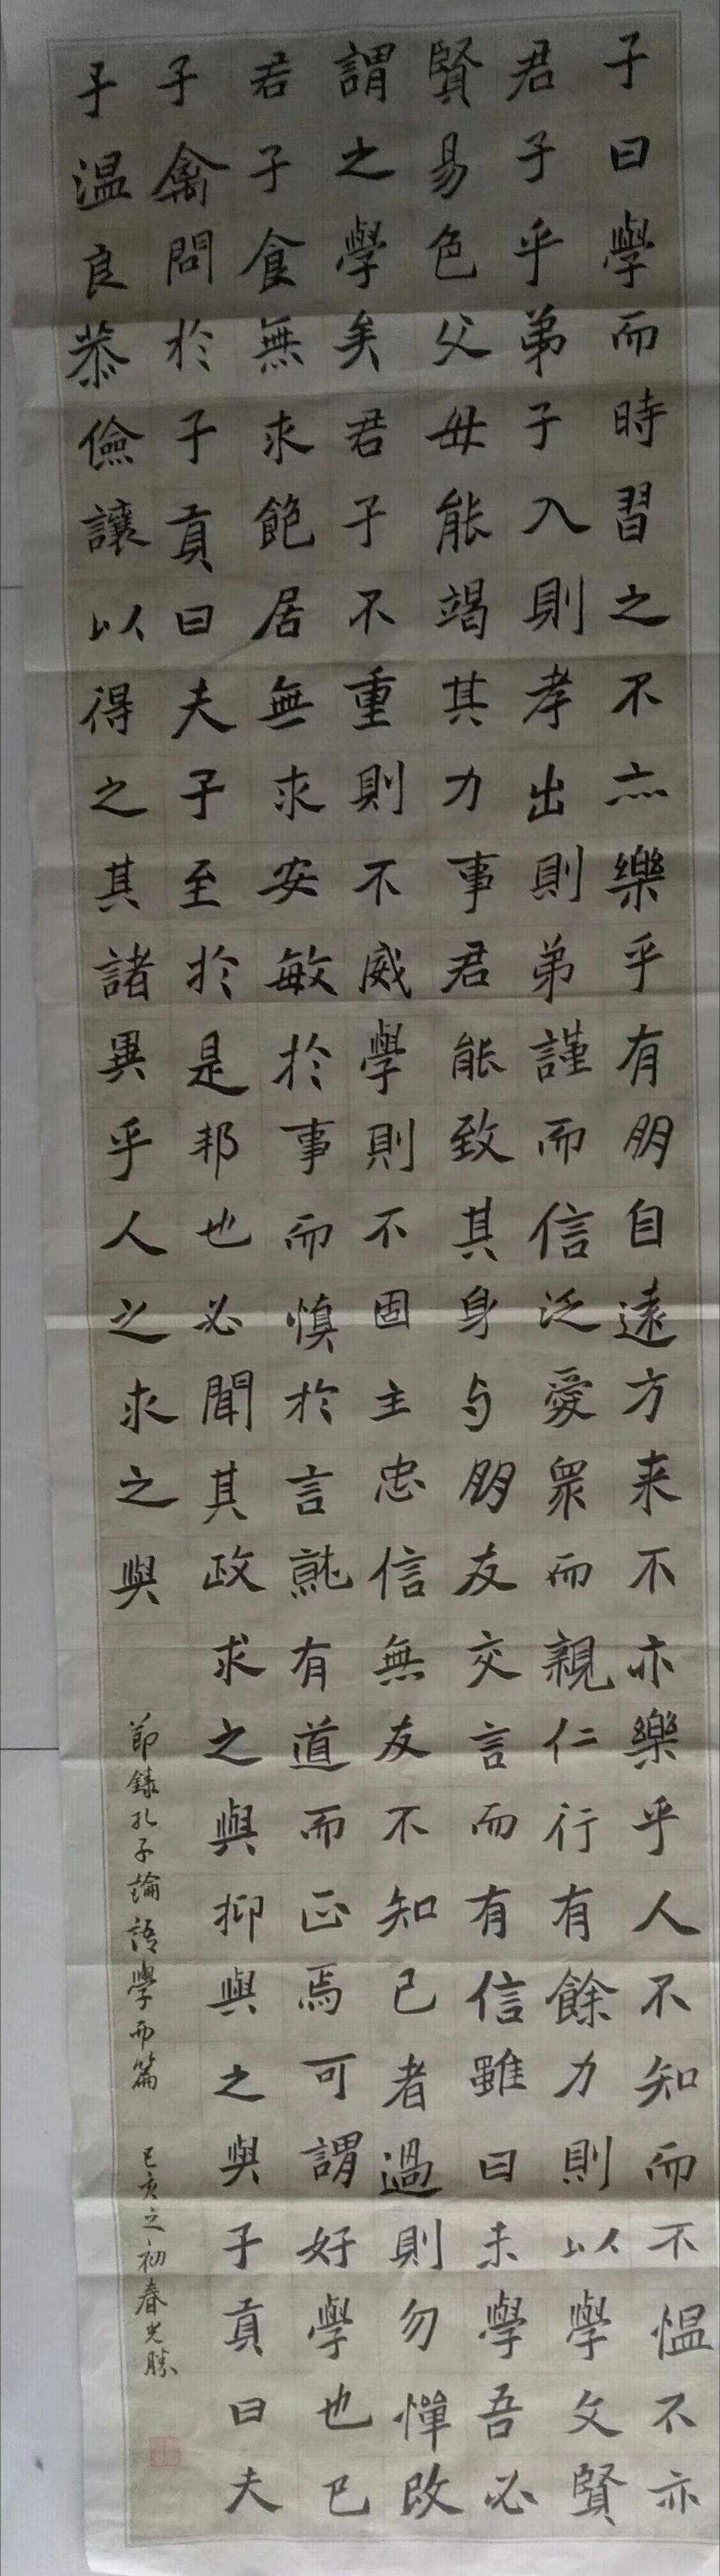 子曰學而時習之不亦樂乎有朋自遠方来不亦樂乎人不知而不愠不亦
君子乎弟子入則孝出則弟謹而信泛愛衆而親仁行有餘力則以學文賢
賢易色父母能竭其力事君能致其身与朋友交言而有信雖曰未學吾必
謂之學矣君子不重則不威學則不固主忠信無友不知己者過則勿憚改
君子食無求飽居無求安敏於事而慎於言就有道而正焉可謂好學也已
子禽問於子貢曰夫子至於是邦也必聞其政求之與抑與之與子貢曰夫
子温良恭儉讓以得之其諸異乎人之求之與
節錄孔子論語學而篇 己亥之初春光勝